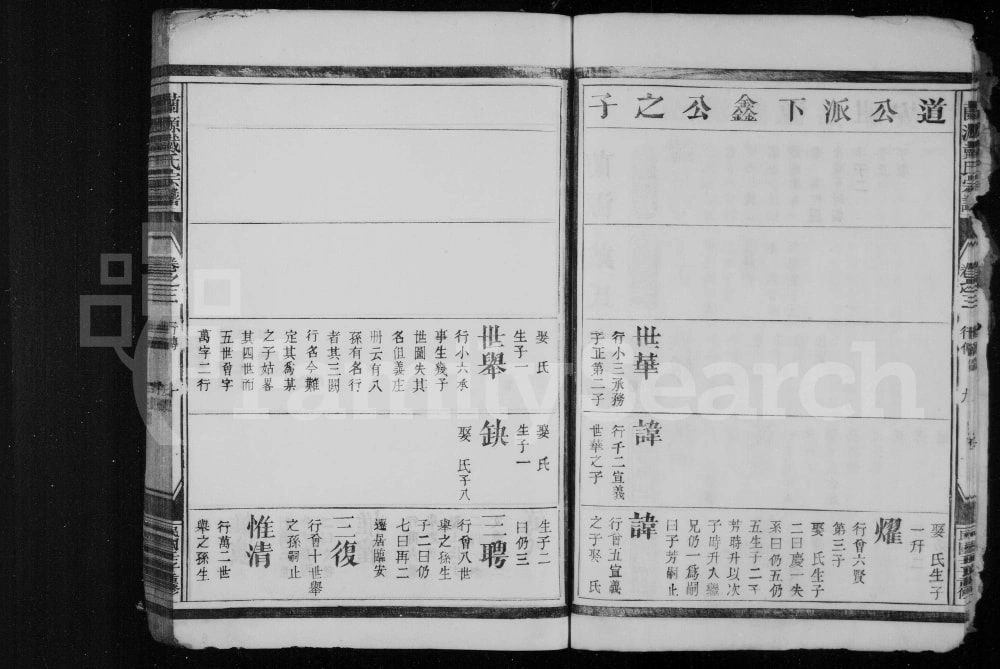 道公派下鑫公之子
世華
行小三承務
子正第二子
諱
行千二宣義
世華之子
娶氏生子
一幵二
燿
行曾六賢
第三子
娶氏生子
二曰慶一失
五生子二千
芳時升以次
子時升入繼
兄仍一爲嗣
曰子芳嗣止
諱
行曾五宣義
之子娶氏
卷之三
行傳
九
娶氏
生子一
世舉
行小六承
事生幾子
世圖失其
名但義庄
冊云有八
孫有名行
者其三闕
行名今難
定其爲某
之子姑畧
其四世而
五世曾字
萬字二行
娶氏
生子一
缺
娶氏子八
生子二
曰仍三
三聘
行曾八世
舉之孫生
子二曰仍
七曰再二
遷居臨安
三復
行曾十世舉
之孫嗣止
惟清
行萬二世
舉之孫生
蘭源戴氏宗譜
卷之三
行傳
十
FamilySearch